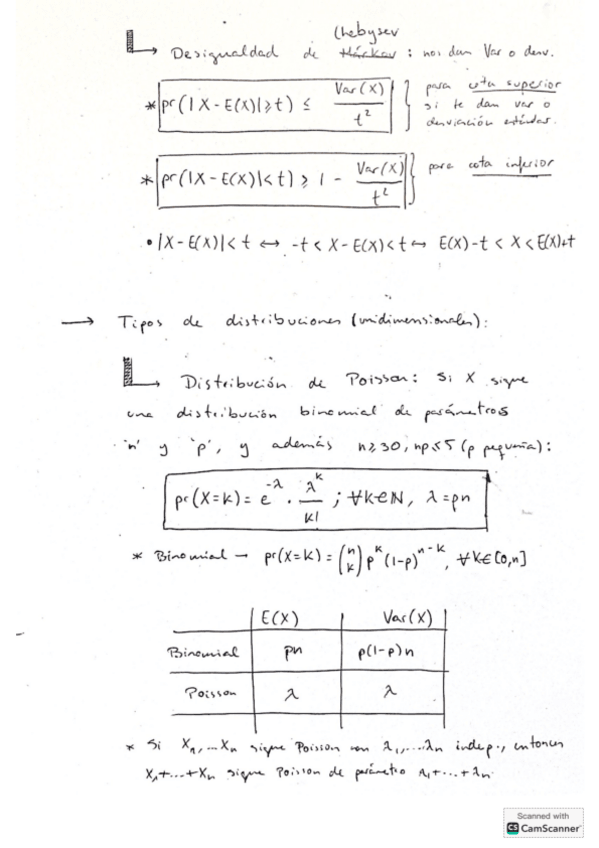 Chebysev
Desigualdad de Márkov : nos dan Var o desv.
* pr(|X-E(X)|⩾t) ≤ Var(X)/t² } para cota superior
si te dan var o
desviación estándar.
* pr(|X-E(X)|<t) ⩾ 1 - Var(X)/t² } para cota inferior
• |X-E(X)|<t ↔ -t < X-E(X)<t ↔ E(X)-t < X < E(X)+t
→ Tipos de distribuciones (unidimensionales):
Distribución de Poisson: Si X sigue
una distribución binomial de parámetros
'n' y 'p', y además n⩾30, np≤5 (p pequeña):
pr(X=k) = e^-λ · λ^k/k! ; ∀k∈ℕ, λ=pn
* Binomial → pr(X=k) = (n k) p^k (1-p)^n-k, ∀k∈[0,n]
E(X) Var(X)
Binomial pn p(1-p)n
Poisson λ λ
* Si X₁,...Xn sigue Poisson con λ₁,...,λn indep., entonces
X₁+...+Xn sigue Poisson de parámetro λ₁+...+λn.
Scanned with
CS CamScanner